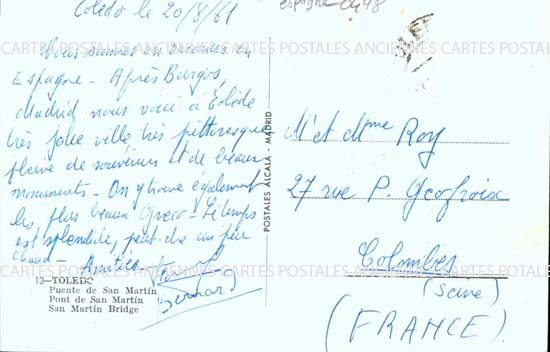 Tolède le 20/8/61
Nous sommes en vacances en
Espagne - Après Burgos,
Madrid nous voici à Tolède
très jolie ville très pittoresque
pleine de souvenirs et de beaux
monuments - On y trouve également
les plus beaux Greco - Le temps
est splendide, peut-être un peu
chaud -
Amitiés
Bernard
13—TOLEDO
Puente de San Martín
Pont de San Martín
San Martín Bridge
POSTALES ALCALÁ - MADRID
espagne 0448
Mr et Mme Roy
27 rue P. Geofroix
Colombes
(Seine)
(FRANCE)
CARTES POSTALES ANCIENNES CARTES POSTALES ANCIENNES CARTES POSTALES